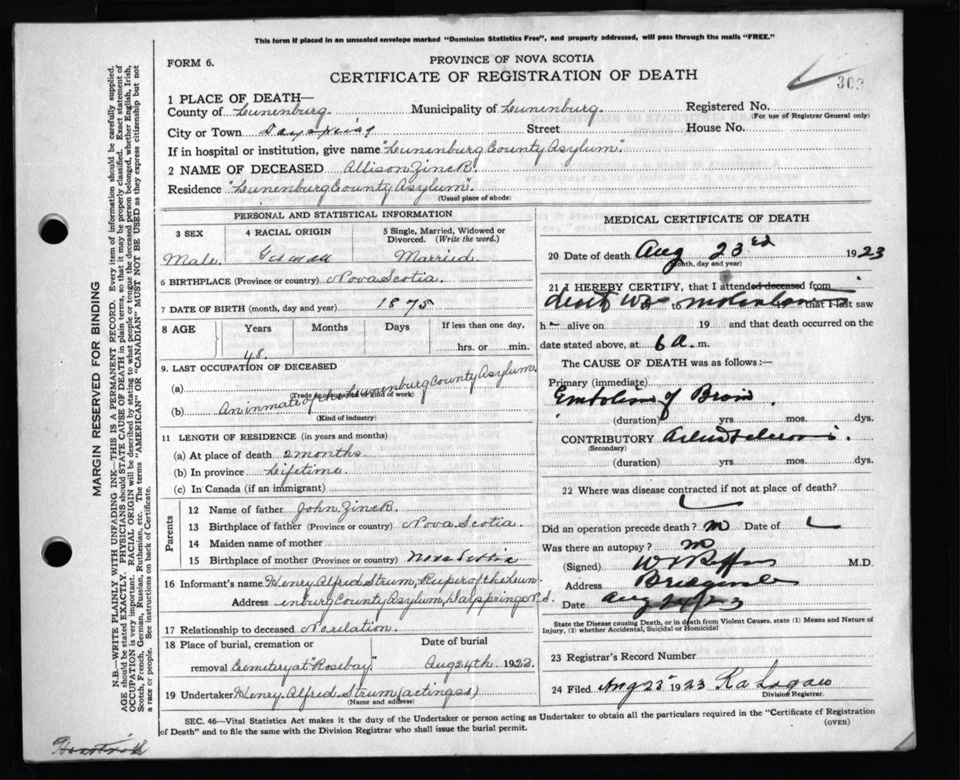 This form if placed in an unsealed envelope marked "Dominion Statistics Free", and properly addressed, will pass through the mails "FREE."
FORM 6.
PROVINCE OF NOVA SCOTIA
CERTIFICATE OF REGISTRATION OF DEATH
303
1 PLACE OF DEATH—
County of Lunenburg Municipality of Lunenburg. Registered No.
(For use of Registrar General only)
City or Town Dayspring Street House No.
If in hospital or institution, give name "Lunenburg County Asylum"
2 NAME OF DECEASED Allison Zinck.
Residence "Lunenburg County Asylum.
(Usual place of abode)
PERSONAL AND STATISTICAL INFORMATION
3 SEX 4 RACIAL ORIGIN 5 Single, Married, Widowed or Divorced. (Write the word.)
Male. German Married.
6 BIRTHPLACE (Province or country) Nova Scotia.
7 DATE OF BIRTH (month, day and year) 1875
8 AGE Years Months Days If less than one day,
48. hrs. or min.
9. LAST OCCUPATION OF DECEASED
(a)
(Trade or occupation or kind of work)
(b) An inmate of the Lunenburg County Asylum.
(Kind of industry)
11 LENGTH OF RESIDENCE (in years and months)
(a) At place of death 2 months.
(b) In province Lifetime.
(c) In Canada (if an immigrant)
Parents
12 Name of father John Zinck.
13 Birthplace of father (Province or country) Nova Scotia.
14 Maiden name of mother
15 Birthplace of mother (Province or country) Nova Scotia
16 Informant's name Henry Alfred Strum, Keeper of the Lun-
Address enburg County Asylum, Dayspring N.S.
17 Relationship to deceased No relation.
18 Place of burial, cremation or Date of burial
removal Cemetery at "Rosebay." Aug 24th 1923.
19 Undertaker Henry Alfred Strum (acting as)
(Name and address)
MEDICAL CERTIFICATE OF DEATH
20 Date of death Aug 23rd 1923
(Month, day and year)
21 I HEREBY CERTIFY, that I attended deceased from
to 19 that I last saw
h alive on 19 and that death occurred on the
date stated above, at 6 a. m.
The CAUSE OF DEATH was as follows:—
Primary (immediate)
Embolism of Brain
(duration) yrs. mos. dys.
CONTRIBUTORY
(Secondary)
(duration) yrs. mos. dys.
22 Where was disease contracted if not at place of death?
Did an operation precede death? no Date of
Was there an autopsy? no
(Signed) M.D.
Address Bridgewater
Date Aug 24/23
State the Disease causing Death, or in death from Violent Causes, state (1) Means and Nature of Injury, (2) whether Accidental, Suicidal or Homicidal
23 Registrar's Record Number
24 Filed Aug 23 1923
Division Registrar.
SEC. 46—Vital Statistics Act makes it the duty of the Undertaker or person acting as Undertaker to obtain all the particulars required in the "Certificate of Registration
of Death" and to file the same with the Division Registrar who shall issue the burial permit.
(OVER)
MARGIN RESERVED FOR BINDING
N.B.—WRITE PLAINLY WITH UNFADING INK—THIS IS A PERMANENT RECORD. Every item of information should be carefully supplied.
AGE should be stated EXACTLY. PHYSICIANS should STATE CAUSE OF DEATH in plain terms, so that it may be properly classified. Exact statement of
OCCUPATION is very important. RACIAL ORIGIN will be described by stating to what people or tongue the deceased person belonged, whether English, Irish,
Scotch, French, German, Russian, Ruthenian, etc. The terms "AMERICAN" OR "CANADIAN" MUST NOT BE USED as they express citizenship but not
a race or people. See instructions on back of Certificate.